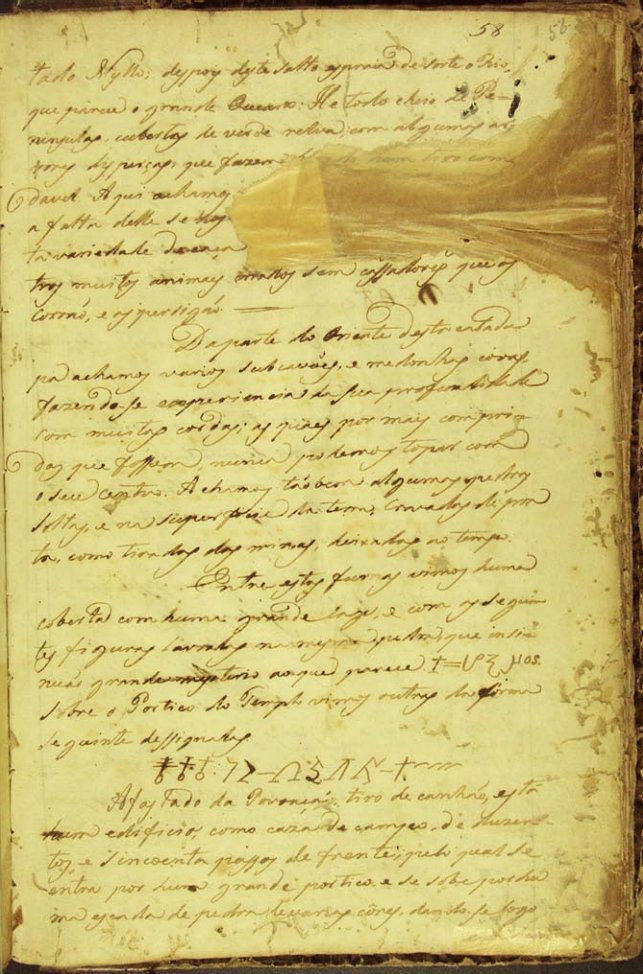 58 56
tado Nyllo; despoy deste salto espraia de sorte o Rio,
que parece o grande Occeano: He todo cheio de Pe-
ninsulas, cubertas de verde relva; com algumas ar-
vores disperças, que fazem hum tiro com
davel. Aqui achamos
a falta delle se
ta variedade de caça
tros muitos animaes criados sem cassadores que os
corraõ, e os persigaõ
Daparte do Oriente desta catadu
pa achamos varios subcavões, e medonhas covas,
fazendo-se experiencia da sua profundidade
com muitas cordas; as quaes por mais compri-
das que fossem, nunca podemos topar com
o seu centro. Achamos taõbem algumas pedras
soltas, e na superficie da terra, cravadas de pra
ta, como tiradas das minas, deixadas ao tempo.
Entre estas furnas vimos huma
coberta com huma grande lage, e com as seguin
tes figuras lavradas na mesma pedra, que insi-
nuaõ grande misterio ao que parece
Sobre o Portico do Templo vimos outras da forma
seguinte dessignadas
Afastado da Povoaçaõ, tiro de canhaõ, esta
hum edificio, como caza de campo, de duzen-
tos e sincoenta passos de frente; pelo qual se
entra por hum grande portico, e se sobe por hu
ma escada de pedra de varias côres, dando-se logo